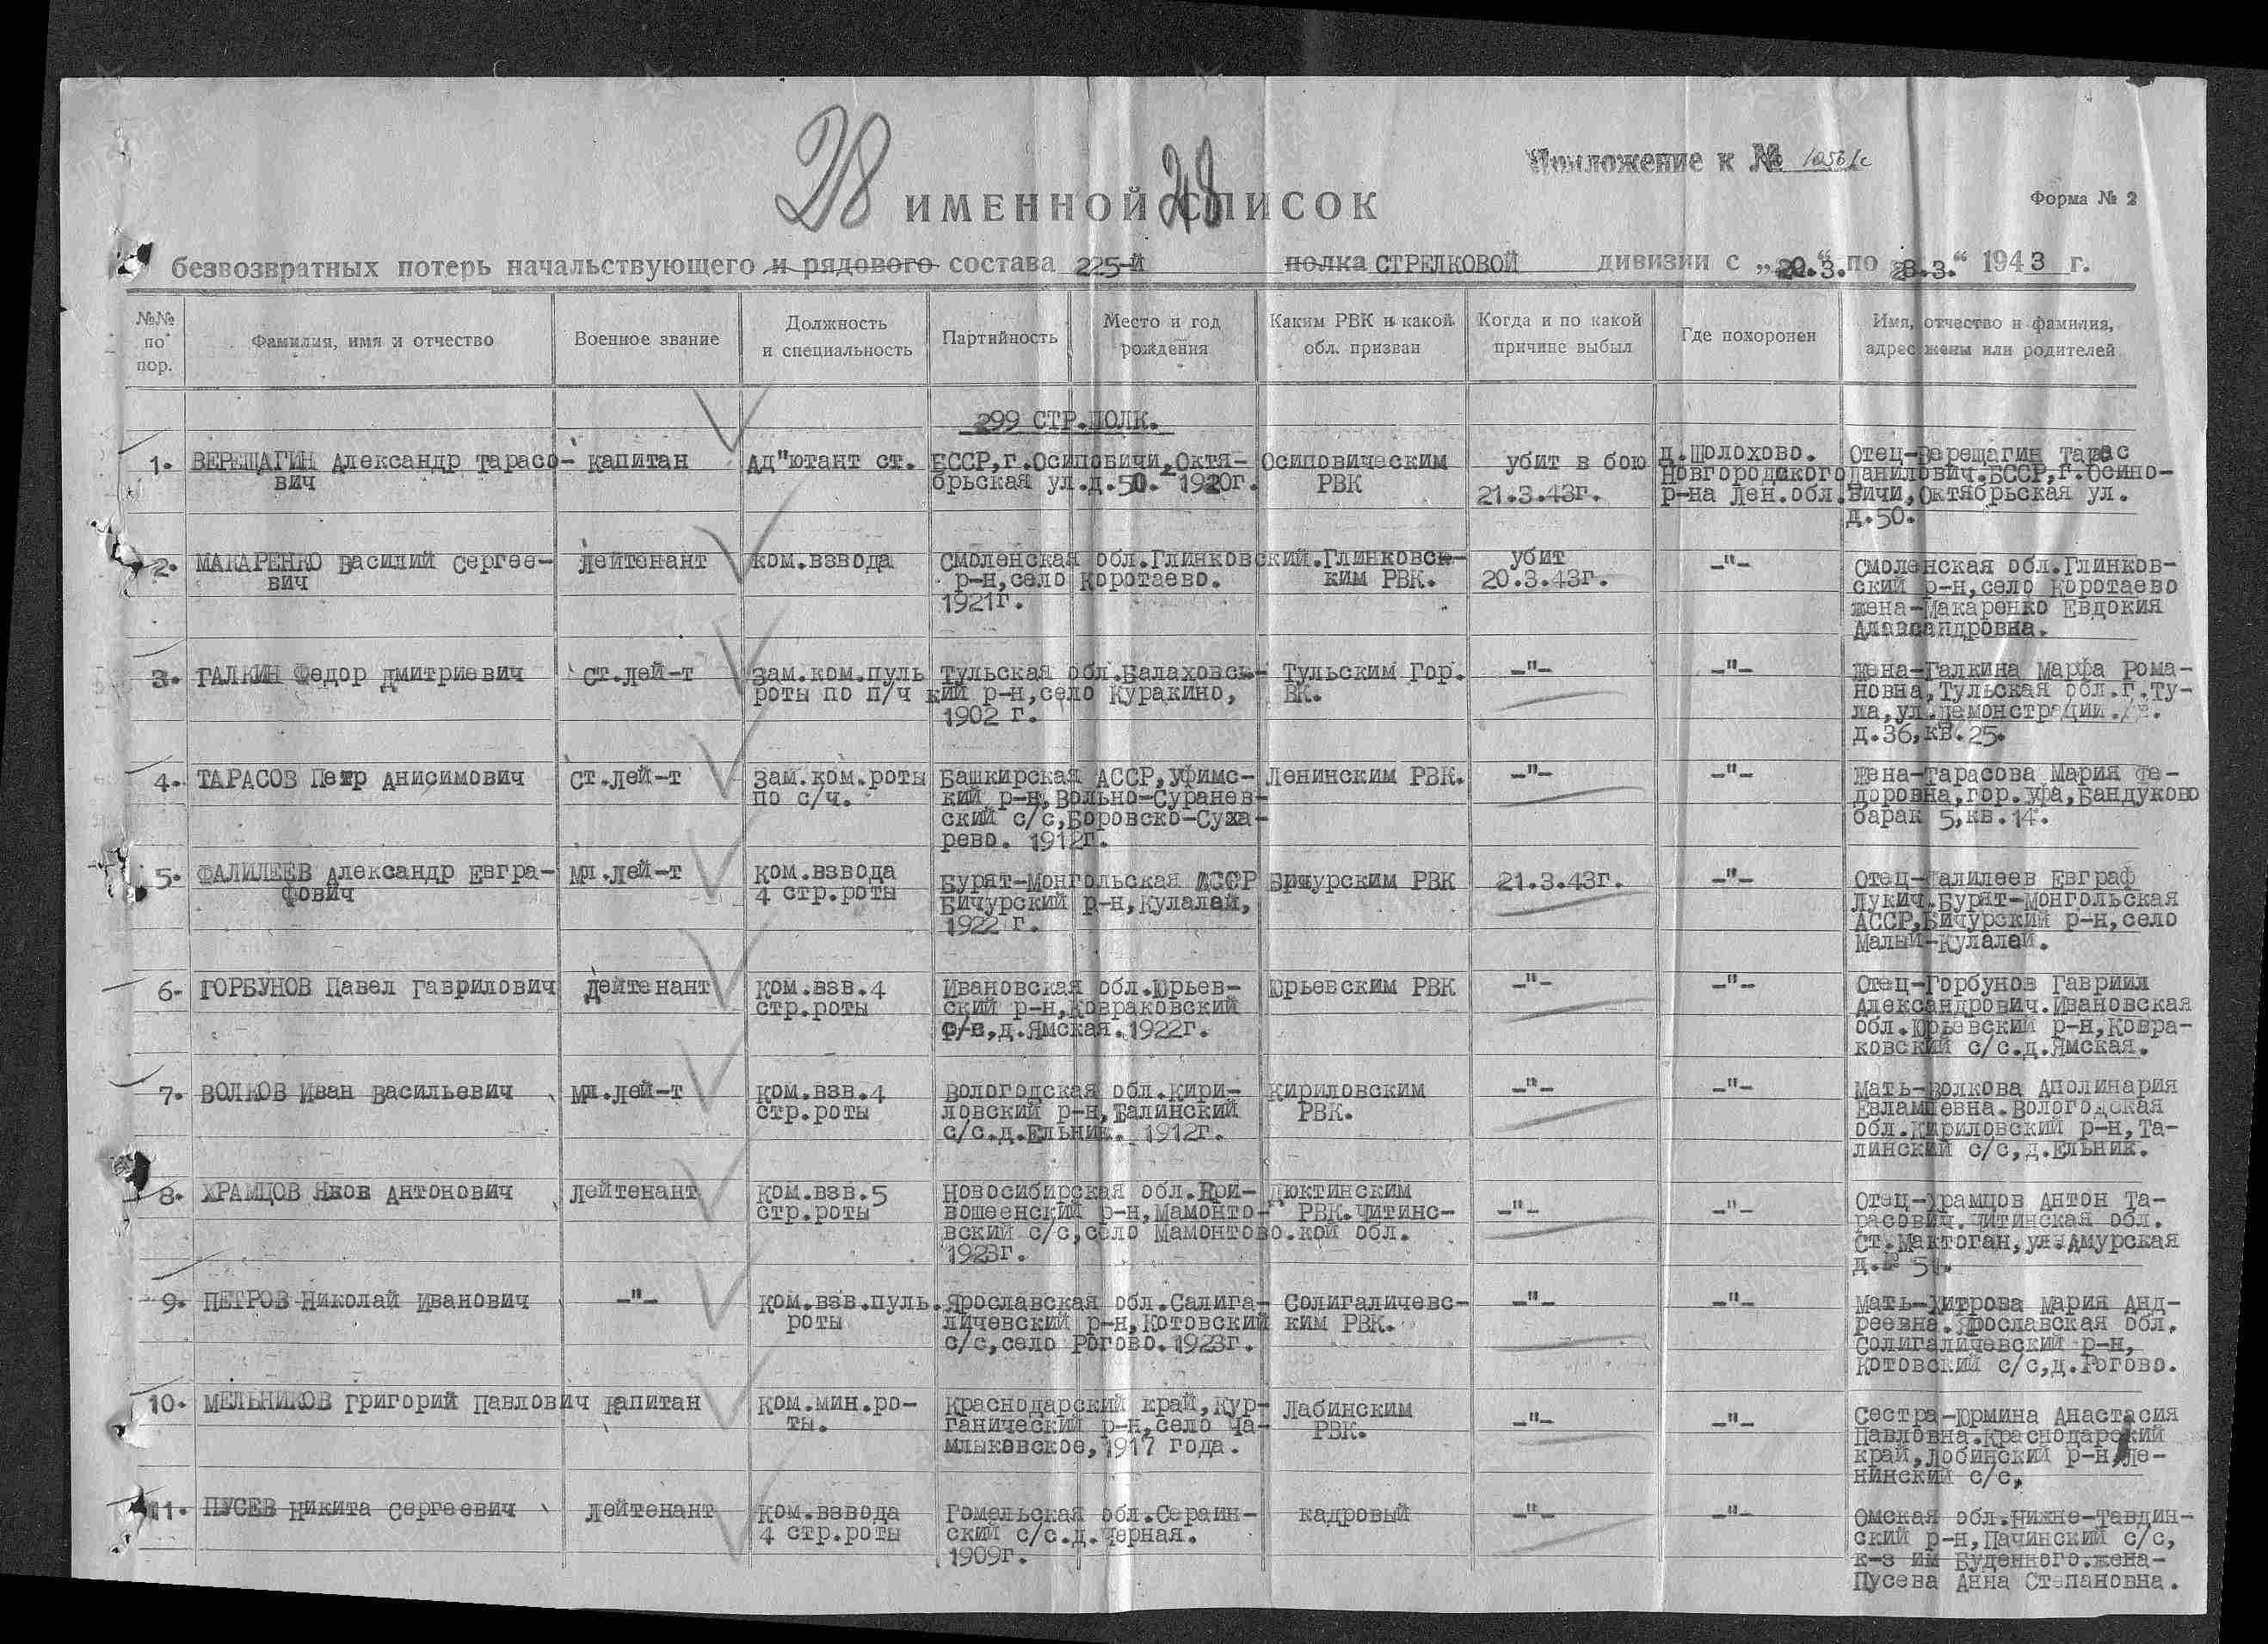 28
28
Приложение к № 1056/с
ИМЕННОЙ СПИСОК
Форма № 2
безвозвратных потерь начальствующего и рядового состава 225-й полка СТРЕЛКОВОЙ дивизии с „20.“3. по 23.3.“ 1943 г.
№№ по пор.
Фамилия, имя и отчество
Военное звание
Должность и специальность
Партийность
Место и год рождения
Каким РВК и какой обл. призван
Когда и по какой причине выбыл
Где похоронен
Имя, отчество и фамилия, адрес жены или родителей
299 СТР.ПОЛК.
1. ВЕРЕЩАГИН Александр Тарасо- капитан Ад"ютант ст. БССР,г.Осиповичи,Октя- Осиповическим убит в бою д.Шолохово. Отец-Верещагин Тарас
вич брьская ул.д.50. 1920г. РВК 21.3.43г. Новгородского Данилович.БССР,г.Осипо-
р-на Лен.обл. вичи,Октябрьская ул.
д.50.
2. МАКАРЕНКО Василий Сергее- лейтенант ком.взвода Смоленская обл.Глинковский. Глинковск- убит -"- Смоленская обл.Глинков-
вич р-н,село Коротаево. ким РВК. 20.3.43г. ский р-н,село Коротаево
1921г. жена-Макаренко Евдокия
Александровна.
3. ГАЛКИН Федор Дмитриевич ст.лей-т Зам.ком.пуль Тульская обл.Балаховсь- Тульским Гор. -"- -"- Жена-Галкина Марфа Рома-
роты по п/ч кий р-н,село Куракино, ВК. новна,Тульская обл.г.Ту-
1902 г. ла,ул.Демонстрации.
д.36,кв.25.
4. ТАРАСОВ Петр Анисимович ст.лей-т Зам.ком.роты Башкирская АССР,Уфимс- Ленинским РВК. -"- -"- Жена-Тарасова Мария Фе-
по с/ч. кий р-н,Вольно-Суранев- доровна,гор.Уфа,Бандуково
ский с/с,Боровско-Суха- барак 5,кв.14.
рево. 1912г.
5. ФАЛИЛЕЕВ Александр Евгра- мл.лей-т ком.взвода Бурят-Монгольская АССР Бичурским РВК 21.3.43г. -"- Отец-Фалилеев Евграф
фович 4 стр.роты Бичурский р-н,Кулалай, Лукич.Бурят-Монгольская
1922 г. АССР,Бичурский р-н,село
Малый-Кулалей.
6. ГОРБУНОВ Павел Гаврилович лейтенант ком.взв.4 Ивановская обл.Юрьев- Юрьевским РВК -"- -"- Отец-Горбунов Гавриил
стр.роты ский р-н,Ковраковский Александрович.Ивановская
с/с,д.Ямская.1922г. обл.Юрьевский р-н,Ковра-
ковский с/с.д.Ямская.
7. ВОЛКОВ Иван Васильевич мл.лей-т ком.взв.4 Вологодская обл.Кири- Кириловским -"- -"- Мать-Волкова Аполинария
стр.роты ловский р-н,Талинский РВК. Евлампевна.Вологодская
с/с.д.Ельник. 1912г. обл.Кириловский р-н,Та-
линский с/с,д.Ельник.
8. ХРАМЦОВ Яков Антонович лейтенант ком.взв.5 Новосибирская обл.Кри- Дюктинским -"- -"- Отец-Храмцов Антон Та-
стр.роты вошеенский р-н,Мамонто- РВК.Читинс- расович.Читинская обл.
вский с/с,село Мамонтово. кой обл. Ст.Мактоган,ул.Амурская
1923г. д.№ 51.
9. ПЕТРОВ Николай Иванович -"- ком.взв.пуль. Ярославская обл.Салига- Солигаличевс- -"- -"- Мать-Хитрова Мария Анд-
роты личевский р-н,Котовский ким РВК. реевна.Ярославская обл.
с/с,село Рогово.1923г. Солигаличевский р-н,
Котовский с/с,д.Рогово.
10. МЕЛЬНИКОВ Григорий Павлович капитан ком.мин.ро- Краснодарский край,Кур- Лабинским -"- -"- Сестра-Юрмина Анастасия
ты. ганический р-н,село Ча- РВК. Павловна.Краснодарский
млыковское,1917 года. край,Лобинский р-н,Ле-
нинский с/с,
11. ПУСЕВ Никита Сергеевич лейтенант ком.взвода Гомельская обл.Сераин- кадровый -"- -"- Омская обл.Нижне-Тавдин-
4 стр.роты ский с/с.д.Черная. ский р-н,Пачинский с/с,
1909г. к-з им Буденного.жена-
Пусева Анна Степановна.